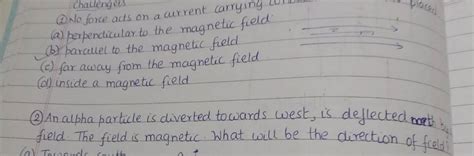 Challengers
① No force acts on a current carrying placed
(a) perpendicular to the magnetic field
(b) parallel to the magnetic field
(c) far away from the magnetic field
(d) inside a magnetic field
② An alpha particle is diverted towards west, is deflected north
field. The field is magnetic. What will be the direction of field?
(a) Towards south